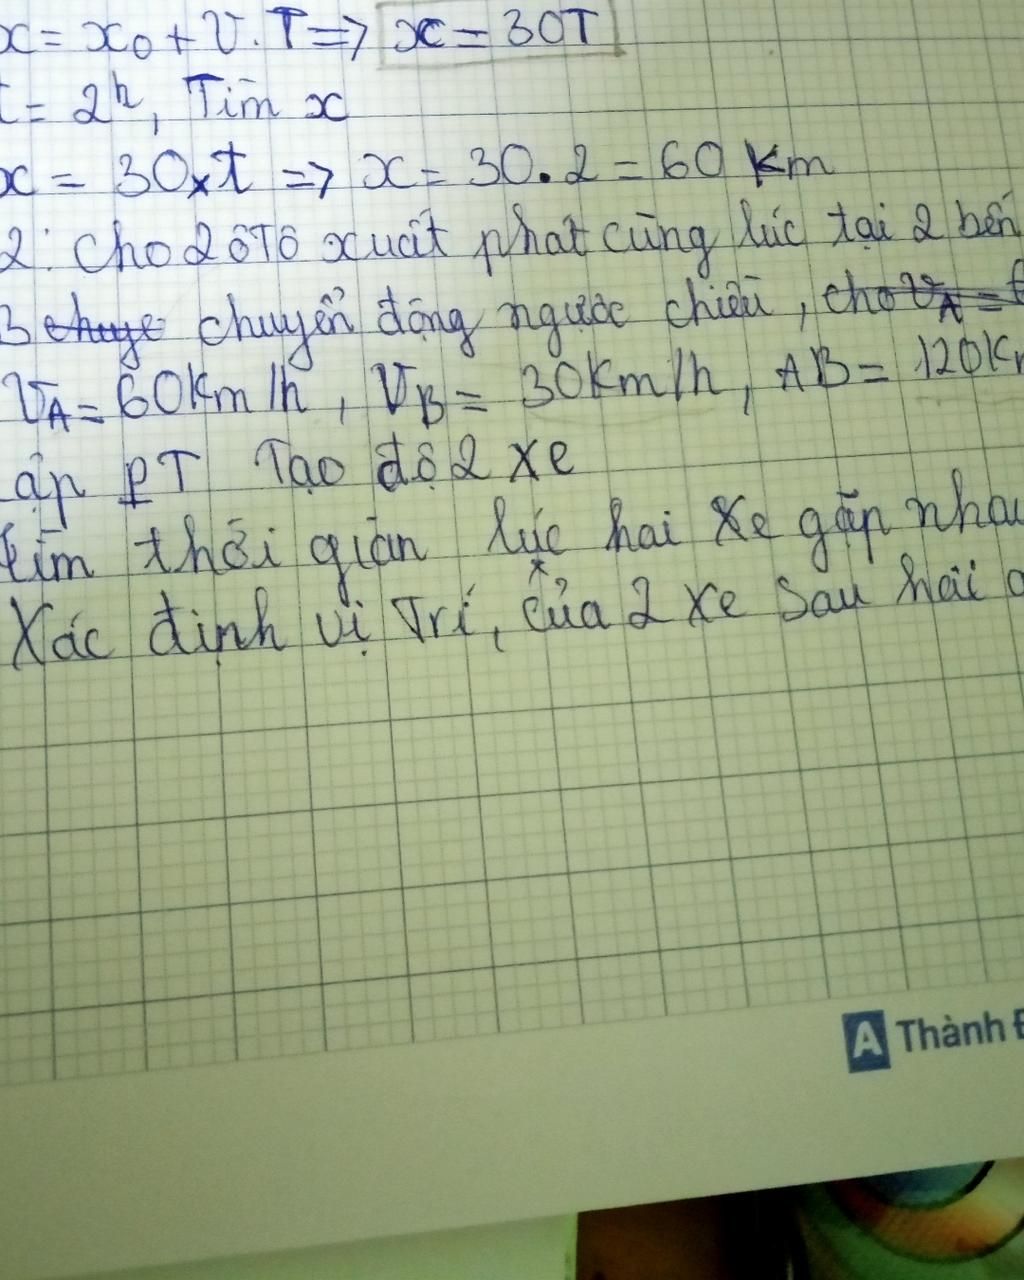 x = x₀ + v. T => x = 30T
t = 2h, Tìm x
x = 30×t => x = 30.2 = 60 Km
2: Cho 2 ôTô xuất phat cùng lúc tại 2 bến
B chuyển động ngược chiều, cho VA =
VA = 60Km/h, VB = 30Km/h, AB = 120K
ập PT Tạo độ 2 xe
tìm thời gian lúc hai xe gặp nhau
Xác định vị Trí, của 2 xe sau hai
A Thành